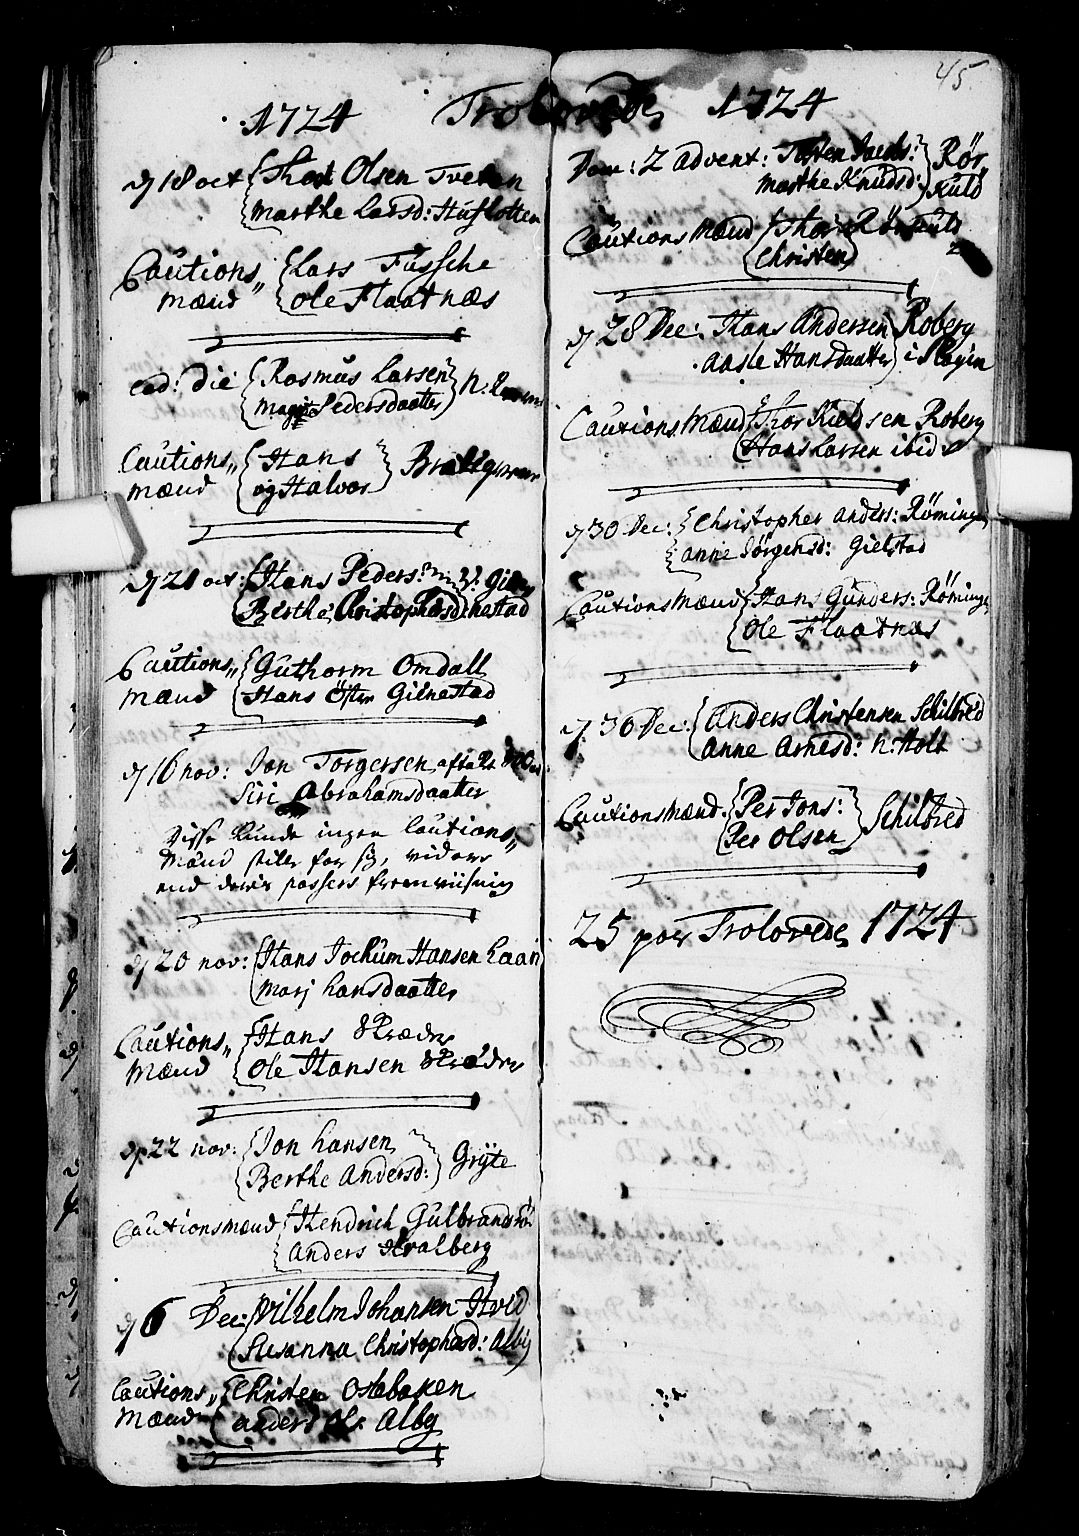 1724 Trolovede 1724
45.
d 18 oct Thor Olsen Tveten
Marthe Larsd: Huslotten
Cautions Lars Füssche
mænd Ole Flaatnæs
ead: die Rasmus Larsen
Pedersdaatter
Cautions Hans
mænd og Halvor
d 21 oct: Hans Peders:
Berthe Christophersd
Cautions Guthorm Omdall
mænd Hans Öster Gilnestad
d 16 nov: Jon Torgersen
Siri Abrahamsdaatter
Disse kunde ingen Cautions
mænd stille for sig, videre
end deris passers fremviisning
d 20 nov: Hans Jochum Hansen Laan
Marj Hansdaatter
Cautions Hans Skræder
mænd Ole Hansen Skræder
d 22 nov: Jon Hansen
Berthe Andersd: Gryte
Cautionsmænd Hendrich Gulbrands
Anders Hvalberg
d 6 Dec: Wilhelm Johansen Hvid
Susanna Christophersd: Alby
Cautions Christen Osebaken
mænd anders Ols: Alby
Dom: 2 advent: Tosten Jacobs: Rør
Marthe Knudsd: kuld
Cautions Mænd Thor Rørkuld
Christen
d 28 Dec: Hans Andersen Roberg
Aasle Hansdaatter i Slagen
Cautions Mænd Thor Kieldsen Roberg
Hans Larsen ibid
d 30 Dec: Christopher Anders: Röminge
Anne Jörgensd: Gielstad
Cautions Mænd Hans Gunders: Röminge
Ole Flaatnæs
d 30 Dec: Anders Christensen Schilbred
Anne Arnesd: N: Holt
Cautions Mænd Per Jons: Schilbred
Per Olsen
25 par Trolovede 1724